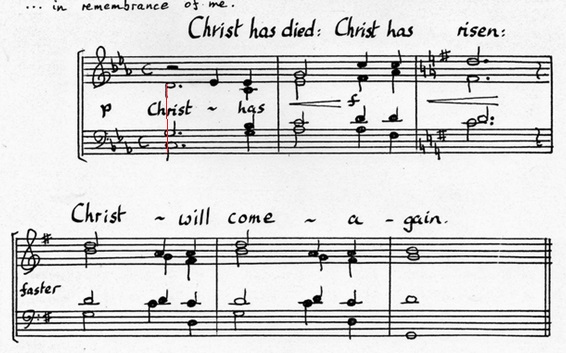 ... in remembrance of me.
Christ has died: Christ has risen:
p Christ ~ has f
Christ ~ will come ~ a - gain.
faster